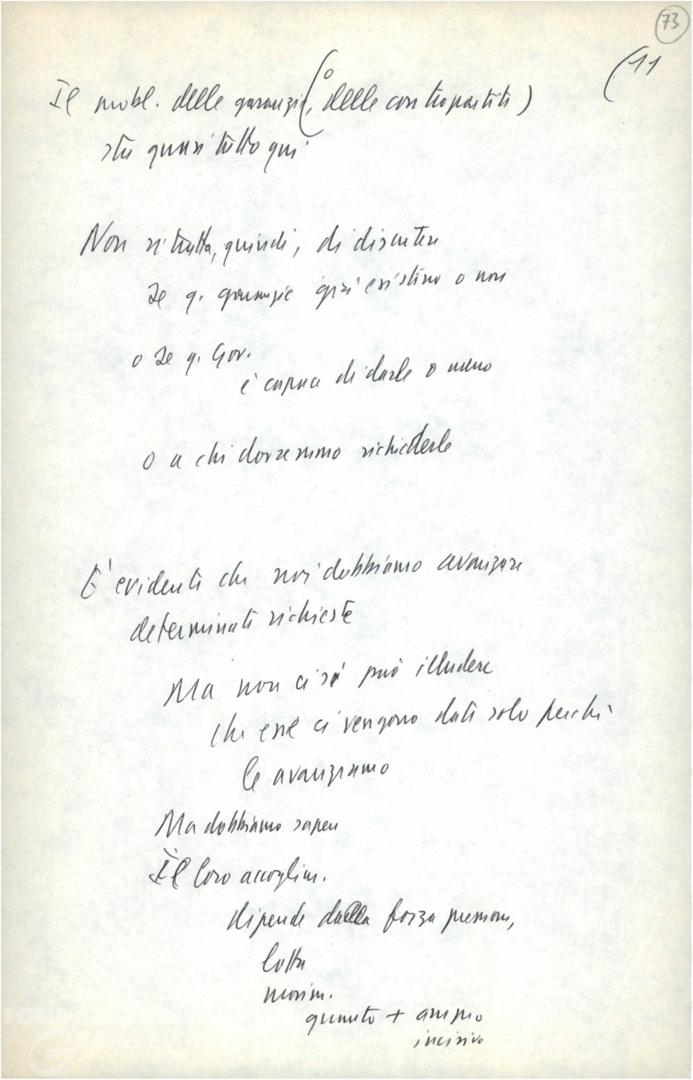 73
(11
Il probl. delle garanzie (o delle contropartite)
sta quasi tutto qui
Non si tratta, quindi, di discutere
se q. garanzie già esistino o non
o se q. Gov.
è capace di darle o meno
o a chi dovremmo richiederle
E' evidente che noi dobbiamo avanzare
determinate richieste
Ma non ci si può illudere
che esse ci vengono date solo perché
le avanziamo
Ma dobbiamo sapere
Il loro accoglim.
dipende dalla forza pressione,
lotta
movim.
quanto + ampio
incisivo